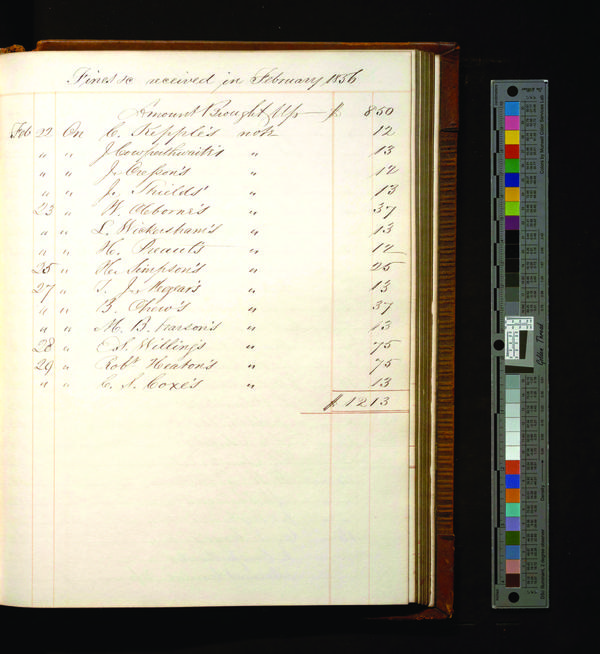 Fines &c received in February 1856
Amount Brought Up — $ 850
Feb 22 On C. Kepple's note 12
" " J Cowperthwaite's " 13
" " J. Cresson's " 12
" " J. Shields' " 13
23 " W. Cleborne's " 37
" " L. Wickersham's " 13
" " H. " 12
25 " H. Simpson's " 25
27 " S. J. Megear's " 13
" " B. Chew's " 37
" " M. B. " 13
28 " E. S. Willing's " 75
29 " Robt. Heaton's " 75
" " C. S. Coxe's " 13
$ 1213
Golden Thread